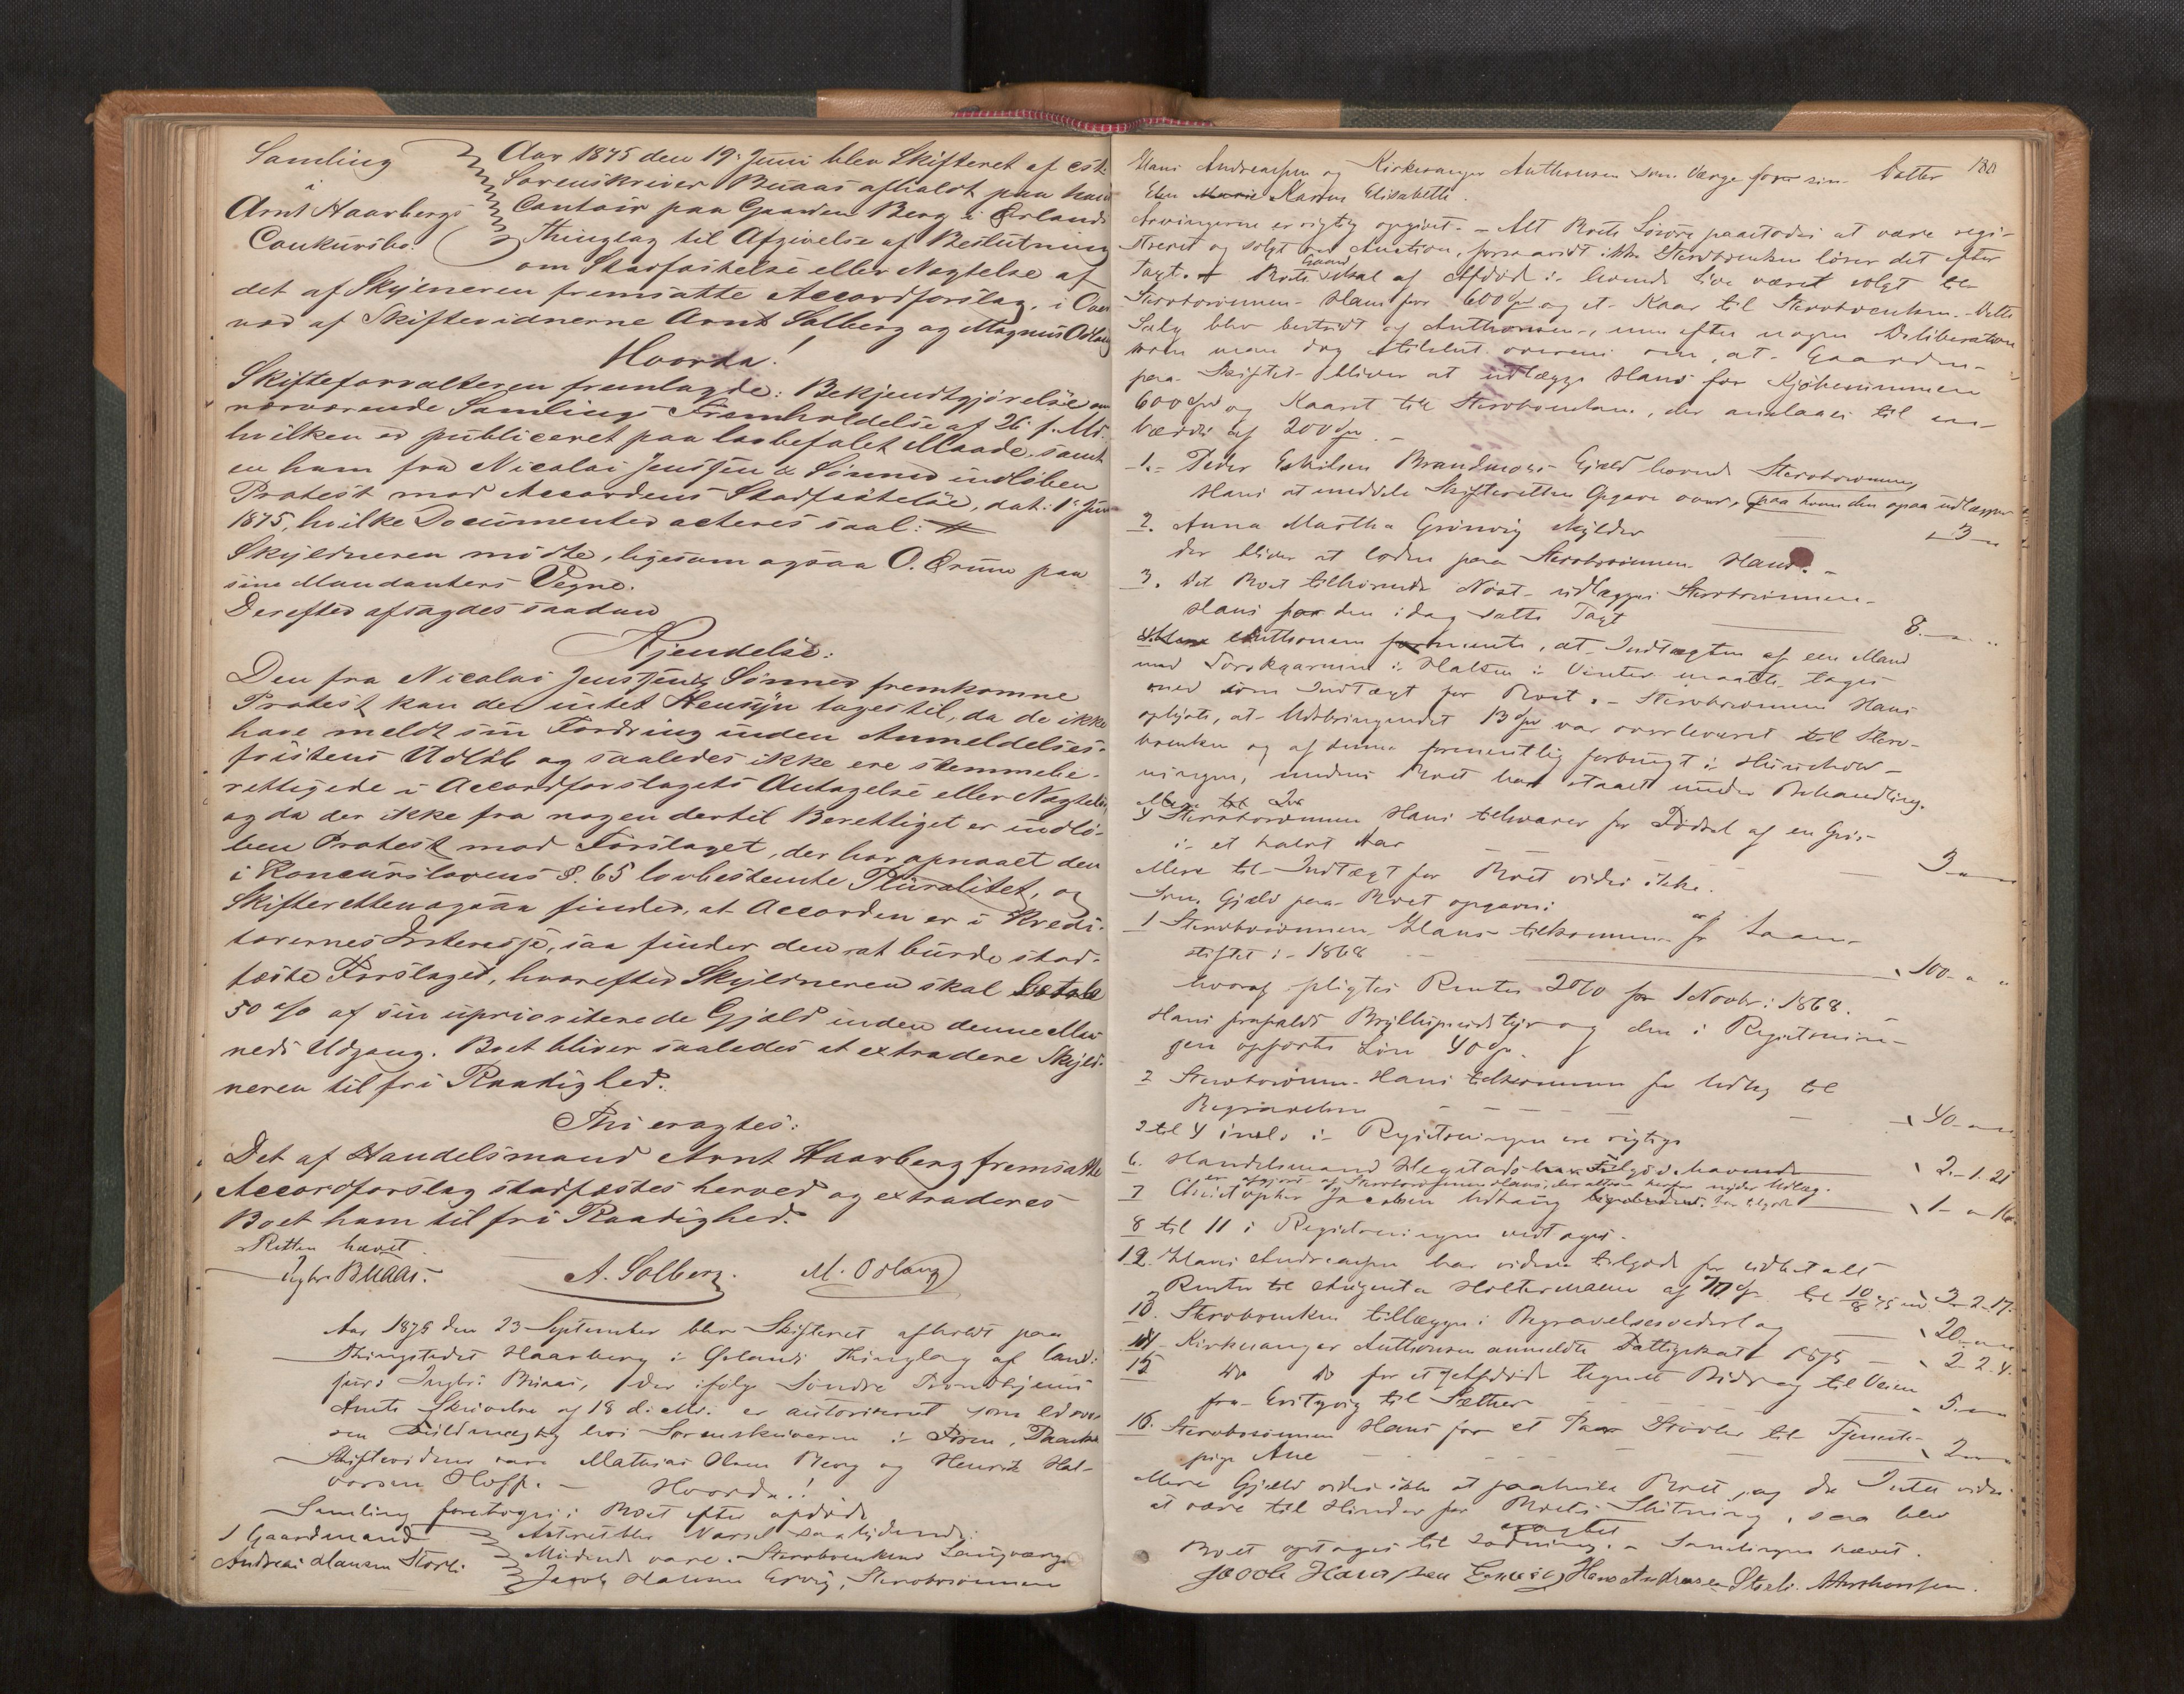 Samling
i
Arnt Haarbergs
Conkursbo.
Aar 1875 den 19. Juni blev Skifteret af cst.
Sorenskriver Buaas afholdt paa hans
Contoir paa Gaarden Berg i Ørlands
Thinglag til Afgivelse af Beslutning
om Stadfæstelse eller Nægtelse af
det af Skyldneren fremsatte Accordforslag, i Over
vær af Skiftevidnerne Arnt Solberg og Magnus Osland
Hvorda!
Skifteforvalteren fremlagde: Bekjendtgjørelse om
nærværende Samlings Fremholdelse af 26 f. Md.
hvilken er publiceret paa lovbefalet Maade, samt
en ham fra Nicolai Jenssen & Sønner indløben
Protest mod Accordens Stadfæstelse, dat: 1 Juni
1875, hvilke Documenter acteres saal:
Skyldneren mødte, ligesom ogsaa O. Ørum paa
sine Mandanters Vegne.
Derefter afsagdes saadan
Kjendelse:
Den fra Nicolai Jenssen & Sønner fremkomne
Protest kan der intet Hensyn tages til, da de ikke
have meldt sin Fordring inden Anmeldelses-
fristens Udløb og saaledes ikke ere stemmebe-
rettigede i Accordforslagets Antagelse eller Nægtelse,
og da der ikke fra nogen dertil Berettiget er indlø-
ben Protest mod Forslaget, der har opnaaet den
i Konkurslovens §. 65 lovbestemte Pluralitet, og
Skifteretten ogsaa finder, at Accorden er i Kredi-
torernes Interesse, saa finder den at burde stad-
fæste Forslaget, hvorefter Skyldneren skal betale
50 % af sin uprioriterede Gjæld inden denne Maa
neds Udgang. Boet bliver saaledes at extradere Skyld-
neren til fri Raadighed.
Thi eragtes:
Det af Handelsmand Arnt Haarberg fremsatte
Accordforslag stadfæstes herved og extraderes
Boet ham til fri Raadighed.
Retten hævet.
Ingbr. Buaas. A. Solberg. M. Osland
Aar 1875 den 23 September blev Skifteret afholdt paa
Thingstedet Haarberg i Ørlands Thinglag af Cand:
juris Ingbr: Buaas, der ifølge Søndre Trondhjems
Amts Skrivelse af 18 d. Md. er autoriseret som edsvor
en Fuldmægtig hos Sorenskriveren i Fosen,
Skiftevidner vare Mathias Olsen Berg og Henrik Hal-
vorsen Hoff. - Hvorda!
Samling foretoges i Boet efter afdøde
1 Gaardmand
Andreas Hansen Storli.
Acteret blev Varsel saalydende:
Mødende vare: Stervboenkens Laugværge
Jacob Hansen Ervig, Stervbosønnen
180
Hans Andreassen og Kirkesanger Anthonsen som Værge for sin Datter
Elen Marie Karen Elisabeth.
Arvingerne er rigtig opgivet. - Alt Boets Løsøre paastodes at være regi-
streret og solgt ved Auction, forsaavidt ikke Stervboenken løser det efter
Taxt. Boets Gaard skal af Afdød i levende Live været solgt til
Stervbosønnen Hans for 600 Spd og et Kaar til Stervboenken. Dette
Salg blev bestridt af Anthonsen, men efter nogen Deliberation
kom man dog tilslut overens om, at Gaarden
paa Skiftet bliver at udlægge Hans for Kjøbesummen
600 Spd og Kaaret til Stervboenken, der ansloges til en
Værdi af 200 Spd. -
1. Peder Eskilsen Brandmoes Gjæld havde Stervbosønnen
Hans at meddele Skifteretten Opgave over, paa hvem den ogsaa udlægges
2. Anna Martha Grönvig skylder 3 -
der bliver at lodne paa Stervbosønnen Hans. -
3. Det Boet tilhørende Nøst udlægges Stervbosønnen
Hans for den idag satte Taxt 8. -
Anthonsen formente, at Indtægten af een Mand
med Torskgarnene i Halten i Vinter maatte tages
med som Indtægt for Boet. - Stervbosønnen Hans
oplyste, at Udbringendet 13 Spd var overleveret til Sterv-
boenken og af denne formentlig forbrugt i Huusholdnin-
ningen, medens Boet har staaet under Behandling.
4 Stervbosønnen Hans tilsvarer for Födsel af en Gris
i et halvt Aar 3 -
Mere til Indtægt for Boet vides ikke.
Som Gjæld paa Boet opgaves:
1 Stervbosønnen Hans tilkommer for Laan
stiftet i 1868 100 - -
hvoraf pligtes Renter fra 1 Novbr: 1868.
Hans frafaldt Bryllupsudstyr og den i Registrerin-
gen opførte Løn 40 Spd.
2 Stervbosønnen Hans tilkommer for Udlæg til
Begravelsen 40 -
3 til 4 incl. i Registreringen ere rigtige
6. Handelsmand Hegstads Tilgodehavende 2 - 1 - 21
er afgjort af Stervbosønnen Hans, der altsaa herfor nyder Udlæg.
7 Christopher Jacobsen Udhaug 1 - " 16
8 til 11 i Registreringen vedtages.
12. Hans Andreassen har videre tilgode for udbetalt
Renter til Augusta Holtermann af 70 Spd til 10/8 75 3 - 2 - 17.
13. Stervboenken tillægges i Begravelsesvederlag 20 -
14 Kirkesanger Anthonsen anmeldte Fattigskat 1875 2 - 2 - 4.
15 do do for et af Afdøde tegnet Bidrag til Veien
fra Ervigvig til Sæther 5. -
16. Stervbosønnen Hans for et Paar Støvler til Tjeneste-
pige Ane 2 -
Mere Gjæld vides ikke at paahvile Boet, og da Intet vides
at være til Hinder for Boets Slutning, saa blev
eragtet
Boet optages til Lodning. - Samlingen hævet.
Jacob Hanssen Ervig Hans Andreasen Storli. Anthonsen.